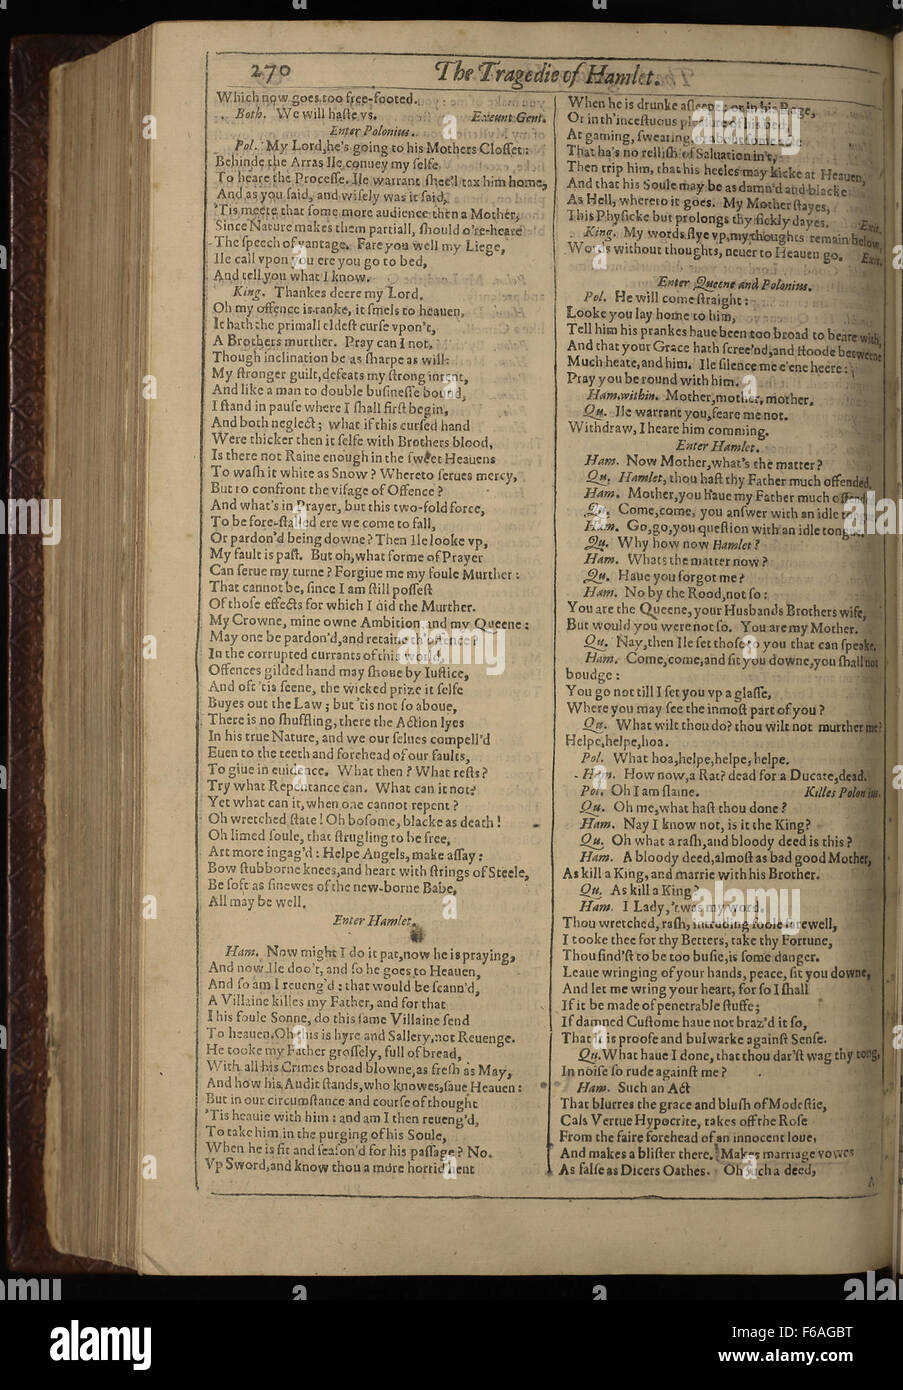 270
The Tragedie of Hamlet.
Which now goes too free-footed.
Both. We will haſte vs. Exeunt Gent.
Enter Polonius.
Pol. My Lord, he's going to his Mothers Cloſſet:
Behinde the Arras Ile conuey my ſelfe
To heare the Proceſſe. Ile warrant ſhee'l tax him home,
And as you ſaid, and wiſely was it ſaid,
'Tis meete that ſome more audience then a Mother,
Since Nature makes them partiall, ſhould o're-heare
The ſpeech of vantage. Fare you well my Liege,
Ile call vpon you ere you go to bed,
And tell you what I know.
King. Thankes deere my Lord.
Oh my offence is ranke, it ſmels to heauen,
It hath the primall eldeſt curſe vpon't,
A Brothers murther. Pray can I not,
Though inclination be as ſharpe as will:
My ſtronger guilt, defeats my ſtrong intent,
And like a man to double buſineſſe bound,
I ſtand in pauſe where I ſhall firſt begin,
And both neglect; what if this curſed hand
Were thicker then it ſelfe with Brothers blood,
Is there not Raine enough in the ſweet Heauens
To waſh it white as Snow? Whereto ſerues mercy,
But to confront the viſage of Offence?
And what's in Prayer, but this two-fold force,
To be fore-ſtalled ere we come to fall,
Or pardon'd being downe? Then Ile looke vp,
My fault is paſt. But oh, what forme of Prayer
Can ſerue my turne? Forgiue me my foule Murther:
That cannot be, ſince I am ſtill poſſeſt
Of thoſe effects for which I did the Murther.
My Crowne, mine owne Ambition, and my Queene:
May one be pardon'd, and retaine th'offence?
In the corrupted currants of this world,
Offences gilded hand may ſhoue by Iuſtice,
And oft 'tis ſeene, the wicked prize it ſelfe
Buyes out the Law; but 'tis not ſo aboue,
There is no ſhuffling, there the Action lyes
In his true Nature, and we our ſelues compell'd
Euen to the teeth and forehead of our faults,
To giue in euidence. What then? What reſts?
Try what Repentance can. What can it not?
Yet what can it, when one cannot repent?
Oh wretched ſtate! Oh boſome, blacke as death!
Oh limed ſoule, that ſtrugling to be free,
Art more ingag'd: Helpe Angels, make aſſay:
Bow ſtubborne knees, and heart with ſtrings of Steele,
Be ſoft as ſinewes of the new-borne Babe,
All may be well.
Enter Hamlet.
Ham. Now might I do it pat, now he is praying,
And now Ile doo't, and ſo he goes to Heauen,
And ſo am I reueng'd: that would be ſcann'd,
A Villaine killes my Father, and for that
I his foule Sonne, do this ſame Villaine ſend
To heauen. Oh this is hyre and Sallery, not Reuenge.
He tooke my Father groſſely, full of bread,
With all his Crimes broad blowne, as freſh as May,
And how his Audit ſtands, who knowes, ſaue Heauen:
But in our circumſtance and courſe of thought
'Tis heauie with him: and am I then reueng'd,
To take him in the purging of his Soule,
When he is fit and ſeaſon'd for his paſſage? No.
Vp Sword, and know thou a more horrid hent
When he is drunke aſleepe: or in his Rage,
Or in th'inceſtuous pleaſure of his bed,
At gaming, ſwearing, or about ſome
That ha's no relliſh of Saluation in't,
Then trip him, that his heeles may kicke at Heauen,
And that his Soule may be as damn'd and blacke
As Hell, whereto it goes. My Mother ſtayes,
This Phyſicke but prolongs thy ſickly dayes. Exit.
King. My words flye vp, my thoughts remain below,
Words without thoughts, neuer to Heauen go. Exit.
Enter Queene and Polonius.
Pol. He will come ſtraight:
Looke you lay home to him,
Tell him his prankes haue been too broad to beare with,
And that your Grace hath ſcree'nd, and ſtoode betweene
Much heate, and him. Ile ſilence me e'ene heere:
Pray you be round with him.
Ham. within. Mother, mother, mother.
Qu. Ile warrant you, feare me not.
Withdraw, I heare him comming.
Enter Hamlet.
Ham. Now Mother, what's the matter?
Qu. Hamlet, thou haſt thy Father much offended.
Ham. Mother, you haue my Father much offend
Qu. Come, come, you anſwer with an idle tongue.
Ham. Go, go, you queſtion with an idle tongue.
Qu. Why how now Hamlet?
Ham. Whats the matter now?
Qu. Haue you forgot me?
Ham. No by the Rood, not ſo:
You are the Queene, your Husbands Brothers wife,
But would you were not ſo. You are my Mother.
Qu. Nay, then Ile ſet thoſe to you that can ſpeake.
Ham. Come, come, and ſit you downe, you ſhall not
boudge:
You go not till I ſet you vp a glaſſe,
Where you may ſee the inmoſt part of you?
Qu. What wilt thou do? thou wilt not murther me?
Helpe, helpe, hoa.
Pol. What hoa, helpe, helpe, helpe.
Ham. How now, a Rat? dead for a Ducate, dead.
Pol. Oh I am ſlaine. Killes Polonius.
Qu. Oh me, what haſt thou done?
Ham. Nay I know not, is it the King?
Qu. Oh what a raſh, and bloody deed is this?
Ham. A bloody deed, almoſt as bad good Mother,
As kill a King, and marrie with his Brother.
Qu. As kill a King?
Ham. I Lady, 'twas my word.
Thou wretched, raſh, intruding foole farewell,
I tooke thee for thy Betters, take thy Fortune,
Thou find'ſt to be too buſie, is ſome danger.
Leaue wringing of your hands, peace, ſit you downe,
And let me wring your heart, for ſo I ſhall
If it be made of penetrable ſtuffe;
If damned Cuſtome haue not braz'd it ſo,
That it is proofe and bulwarke againſt Senſe.
Qu. What haue I done, that thou dar'ſt wag thy tong,
In noiſe ſo rude againſt me?
Ham. Such an Act
That blurres the grace and bluſh of Modeſtie,
Cals Vertue Hypocrite, takes off the Roſe
From the faire forehead of an innocent loue,
And makes a bliſter there. Makes marriage vowes
As falſe as Dicers Oathes. Oh ſuch a deed,
A
alamy
Image ID: F6AGBT
www.alamy.com